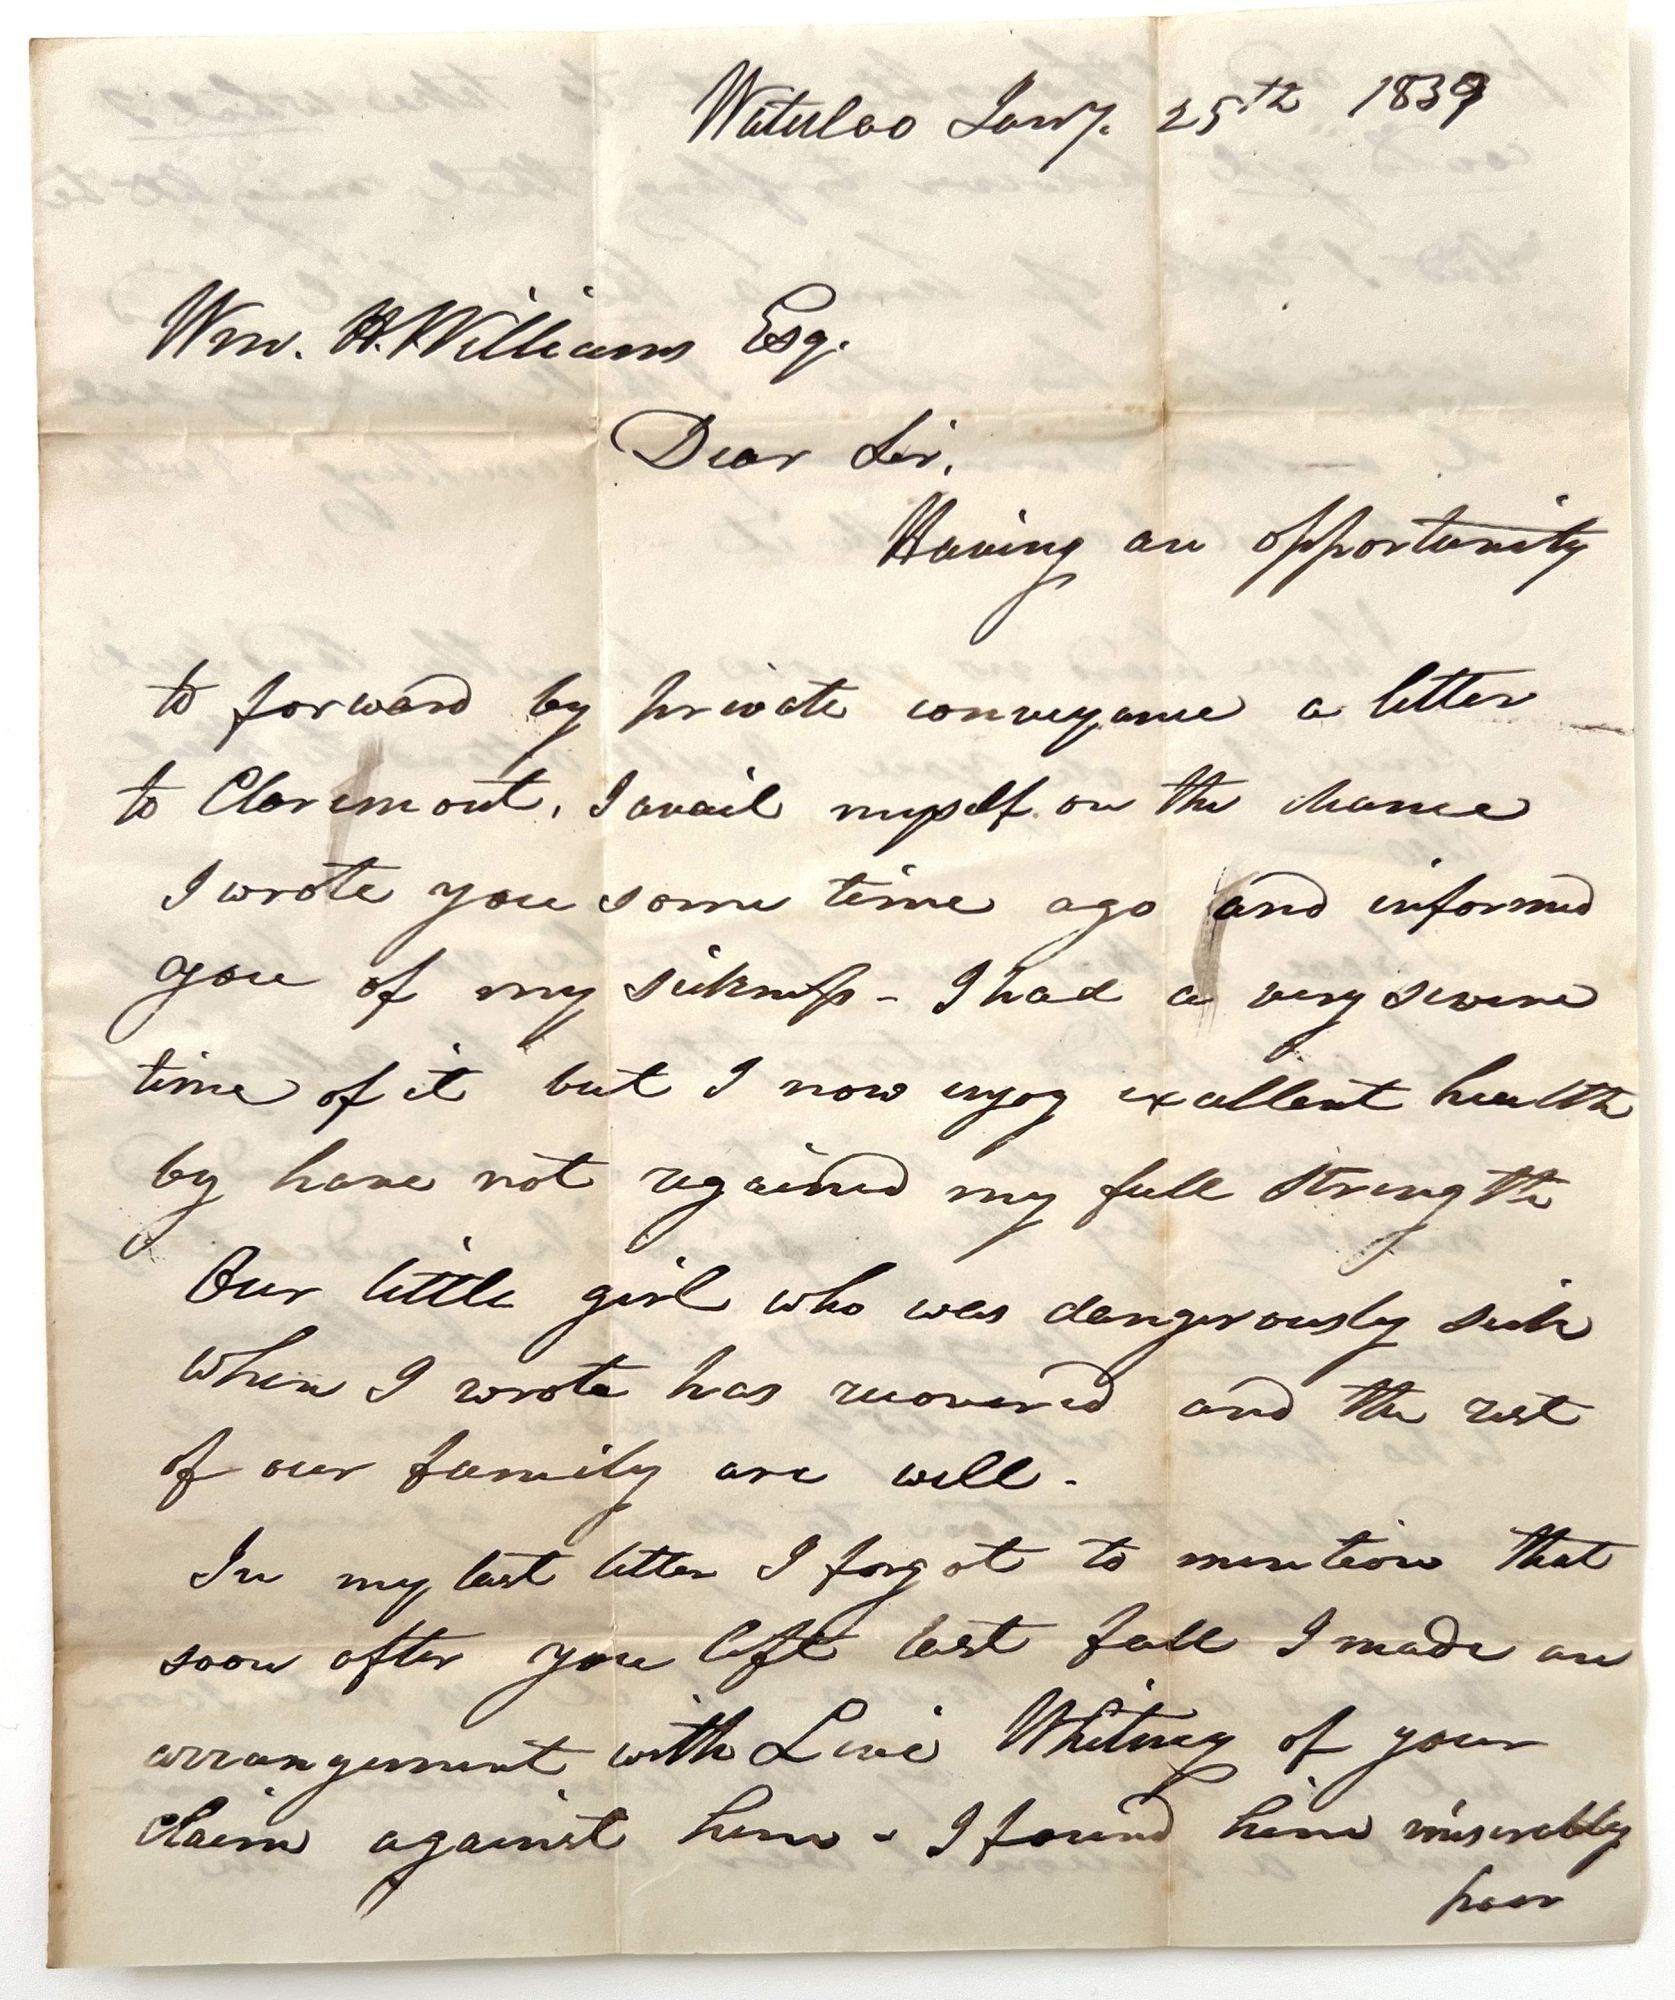 Waterloo Jany. 25th 1839
Wm. H. Williams Esq.
Dear Sir,
Having an opportunity
to forward by private conveyance a letter
to Claremont, I avail myself on the chance
I wrote you some time ago and informed
you of my sickness - I had a very severe
time of it but I now enjoy excellent health
by have not regained my full strength
Our little girl who was dangerously sick
when I wrote has recovered and the rest
of our family are well -
In my last letter I forgot to mention that
soon after you left last fall I made an
arrangement with Levi Whitney of your
claim against him - I found him miserably
poor